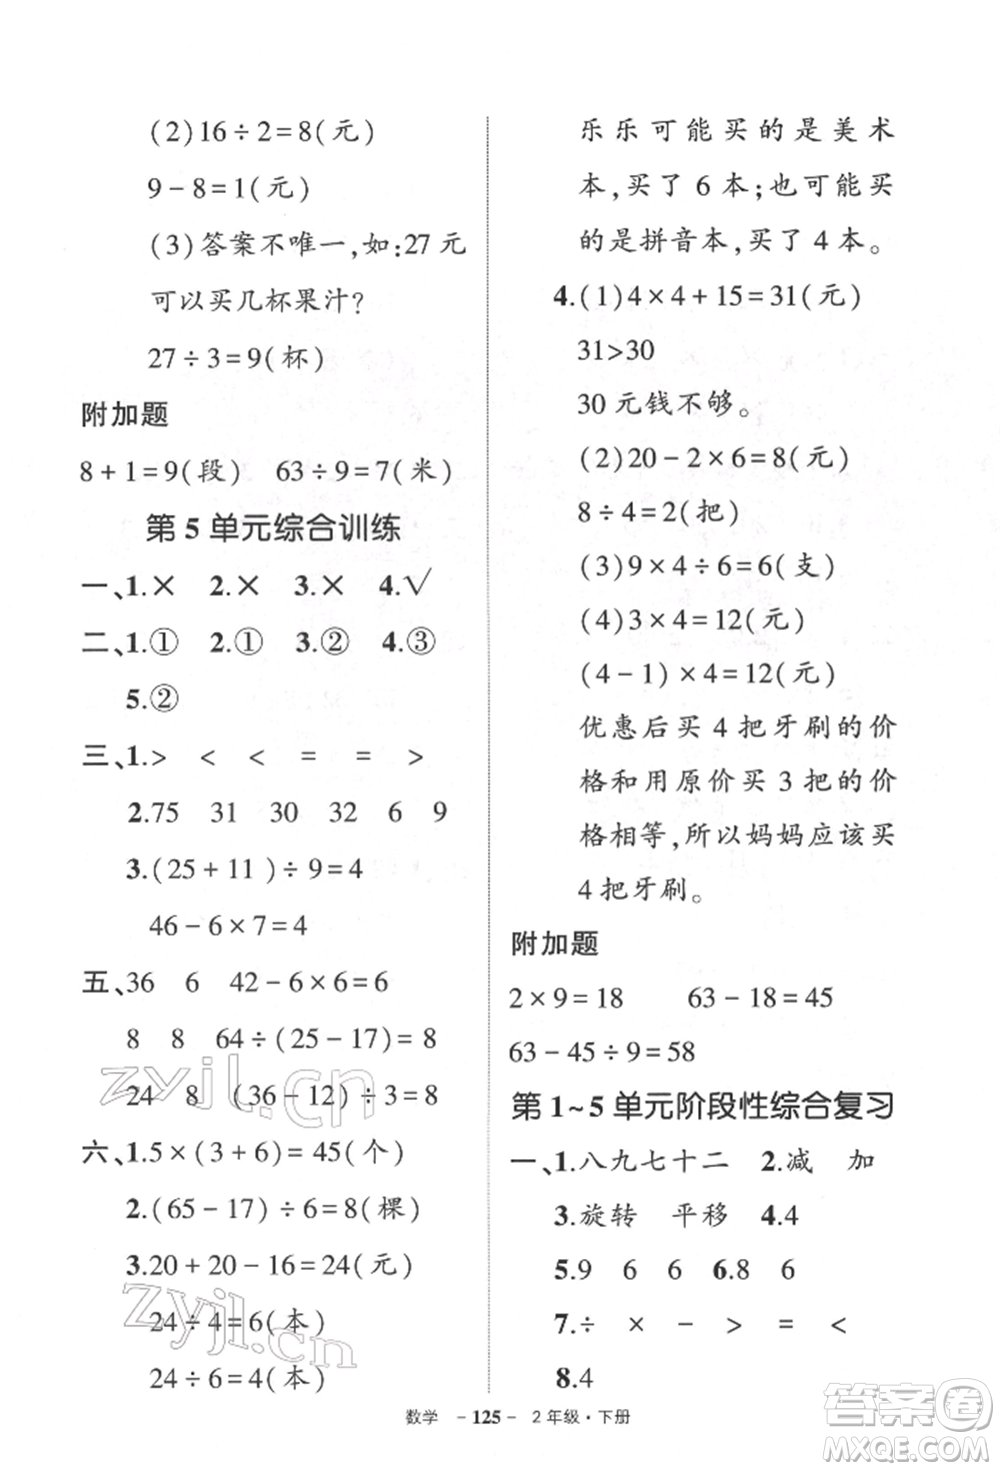 (2)16÷2=8(元)
9-8=1(元)
(3)答案不唯一,如:27元
可以买几杯果汁?
27÷3=9(杯)
附加题
8+1=9(段) 63÷9=7(米)
第5单元综合训练
一、1.× 2.× 3.× 4.√
二、1.① 2.① 3.② 4.③
5.②
三、1.> < < = = >
2.75 31 30 32 6 9
3.(25+11)÷9=4
46-6×7=4
五、36 6 42-6×6=6
8 8 64÷(25-17)=8
24 8 (36-12)÷3=8
六、1.5×(3+6)=45(个)
2.(65-17)÷6=8(棵)
3.20+20-16=24(元)
24÷4=6(本)
24÷6=4(本)
乐乐可能买的是美术
本,买了6本;也可能买
的是拼音本,买了4本。
4.(1)4×4+15=31(元)
31>30
30元钱不够。
(2)20-2×6=8(元)
8÷4=2(把)
(3)9×4÷6=6(支)
(4)3×4=12(元)
(4-1)×4=12(元)
优惠后买4把牙刷的价
格和用原价买3把的价
格相等,所以妈妈应该买
4把牙刷。
附加题
2×9=18 63-18=45
63-45÷9=58
第1~5单元阶段性综合复习
一、1.八九七十二 2.减 加
3.旋转 平移 4.4
5.9 6 6 6.8 6
7.÷ × - > = <
8.4
数学 -125- 2年级·下册
zyjl.cn
zyjl.cn
答案圈
MXQE.COM